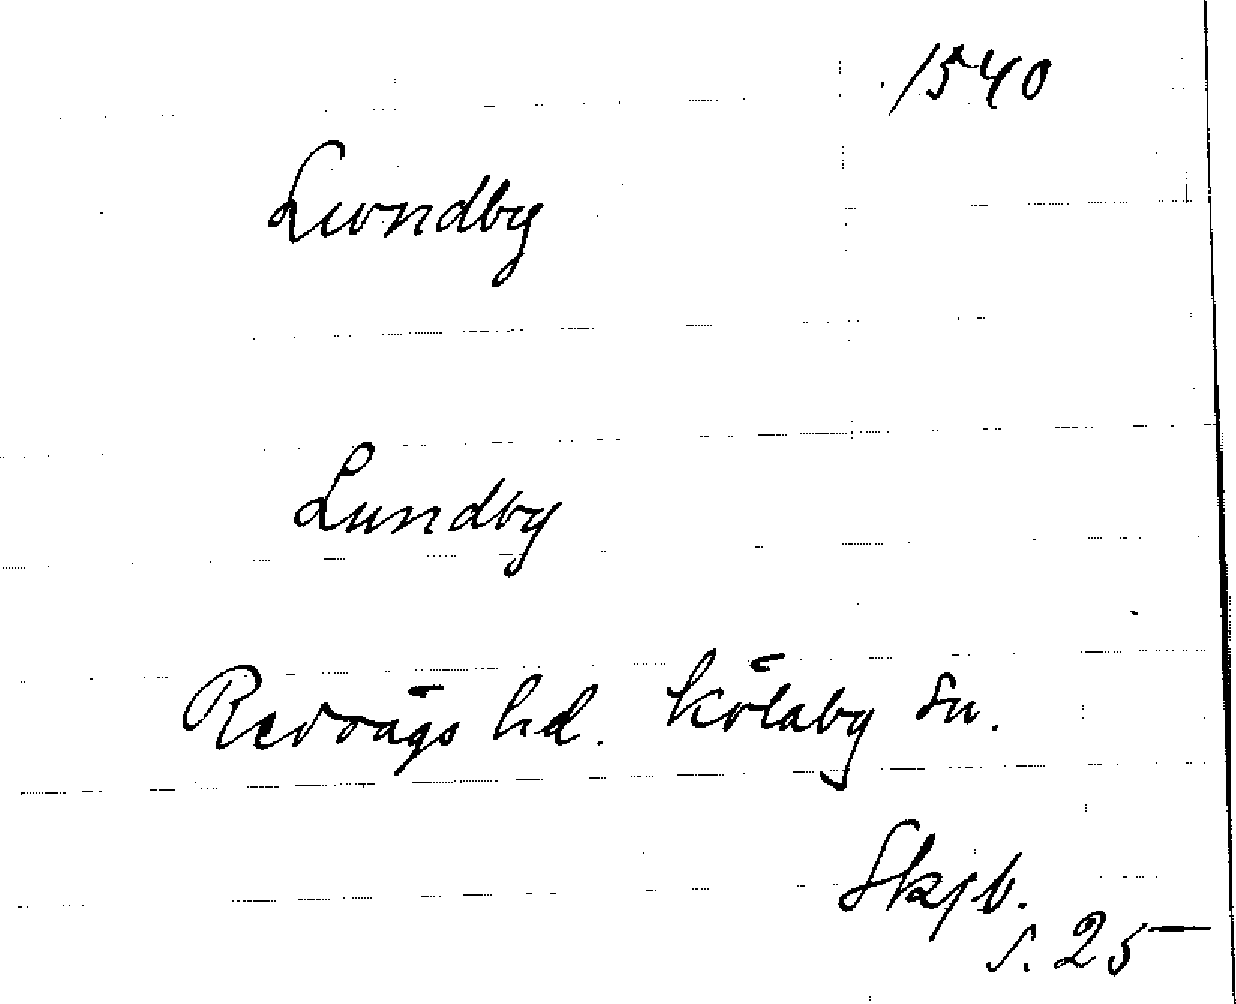 1540
Lwndby
Lundby
Redvägs hd. Kölaby sn.
Skjb.
s. 25